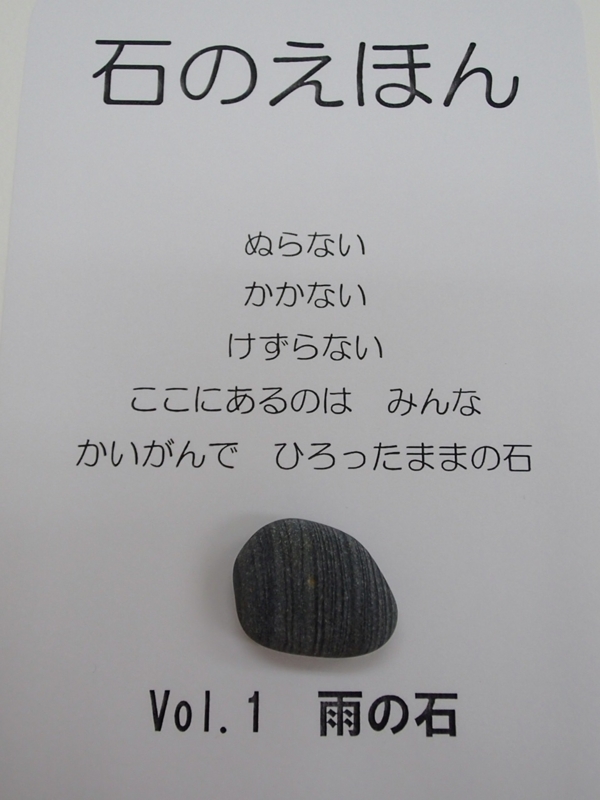 石のえほん
ぬらない
かかない
けずらない
ここにあるのは　みんな
かいがんで　ひろったままの石
Vol.1　雨の石